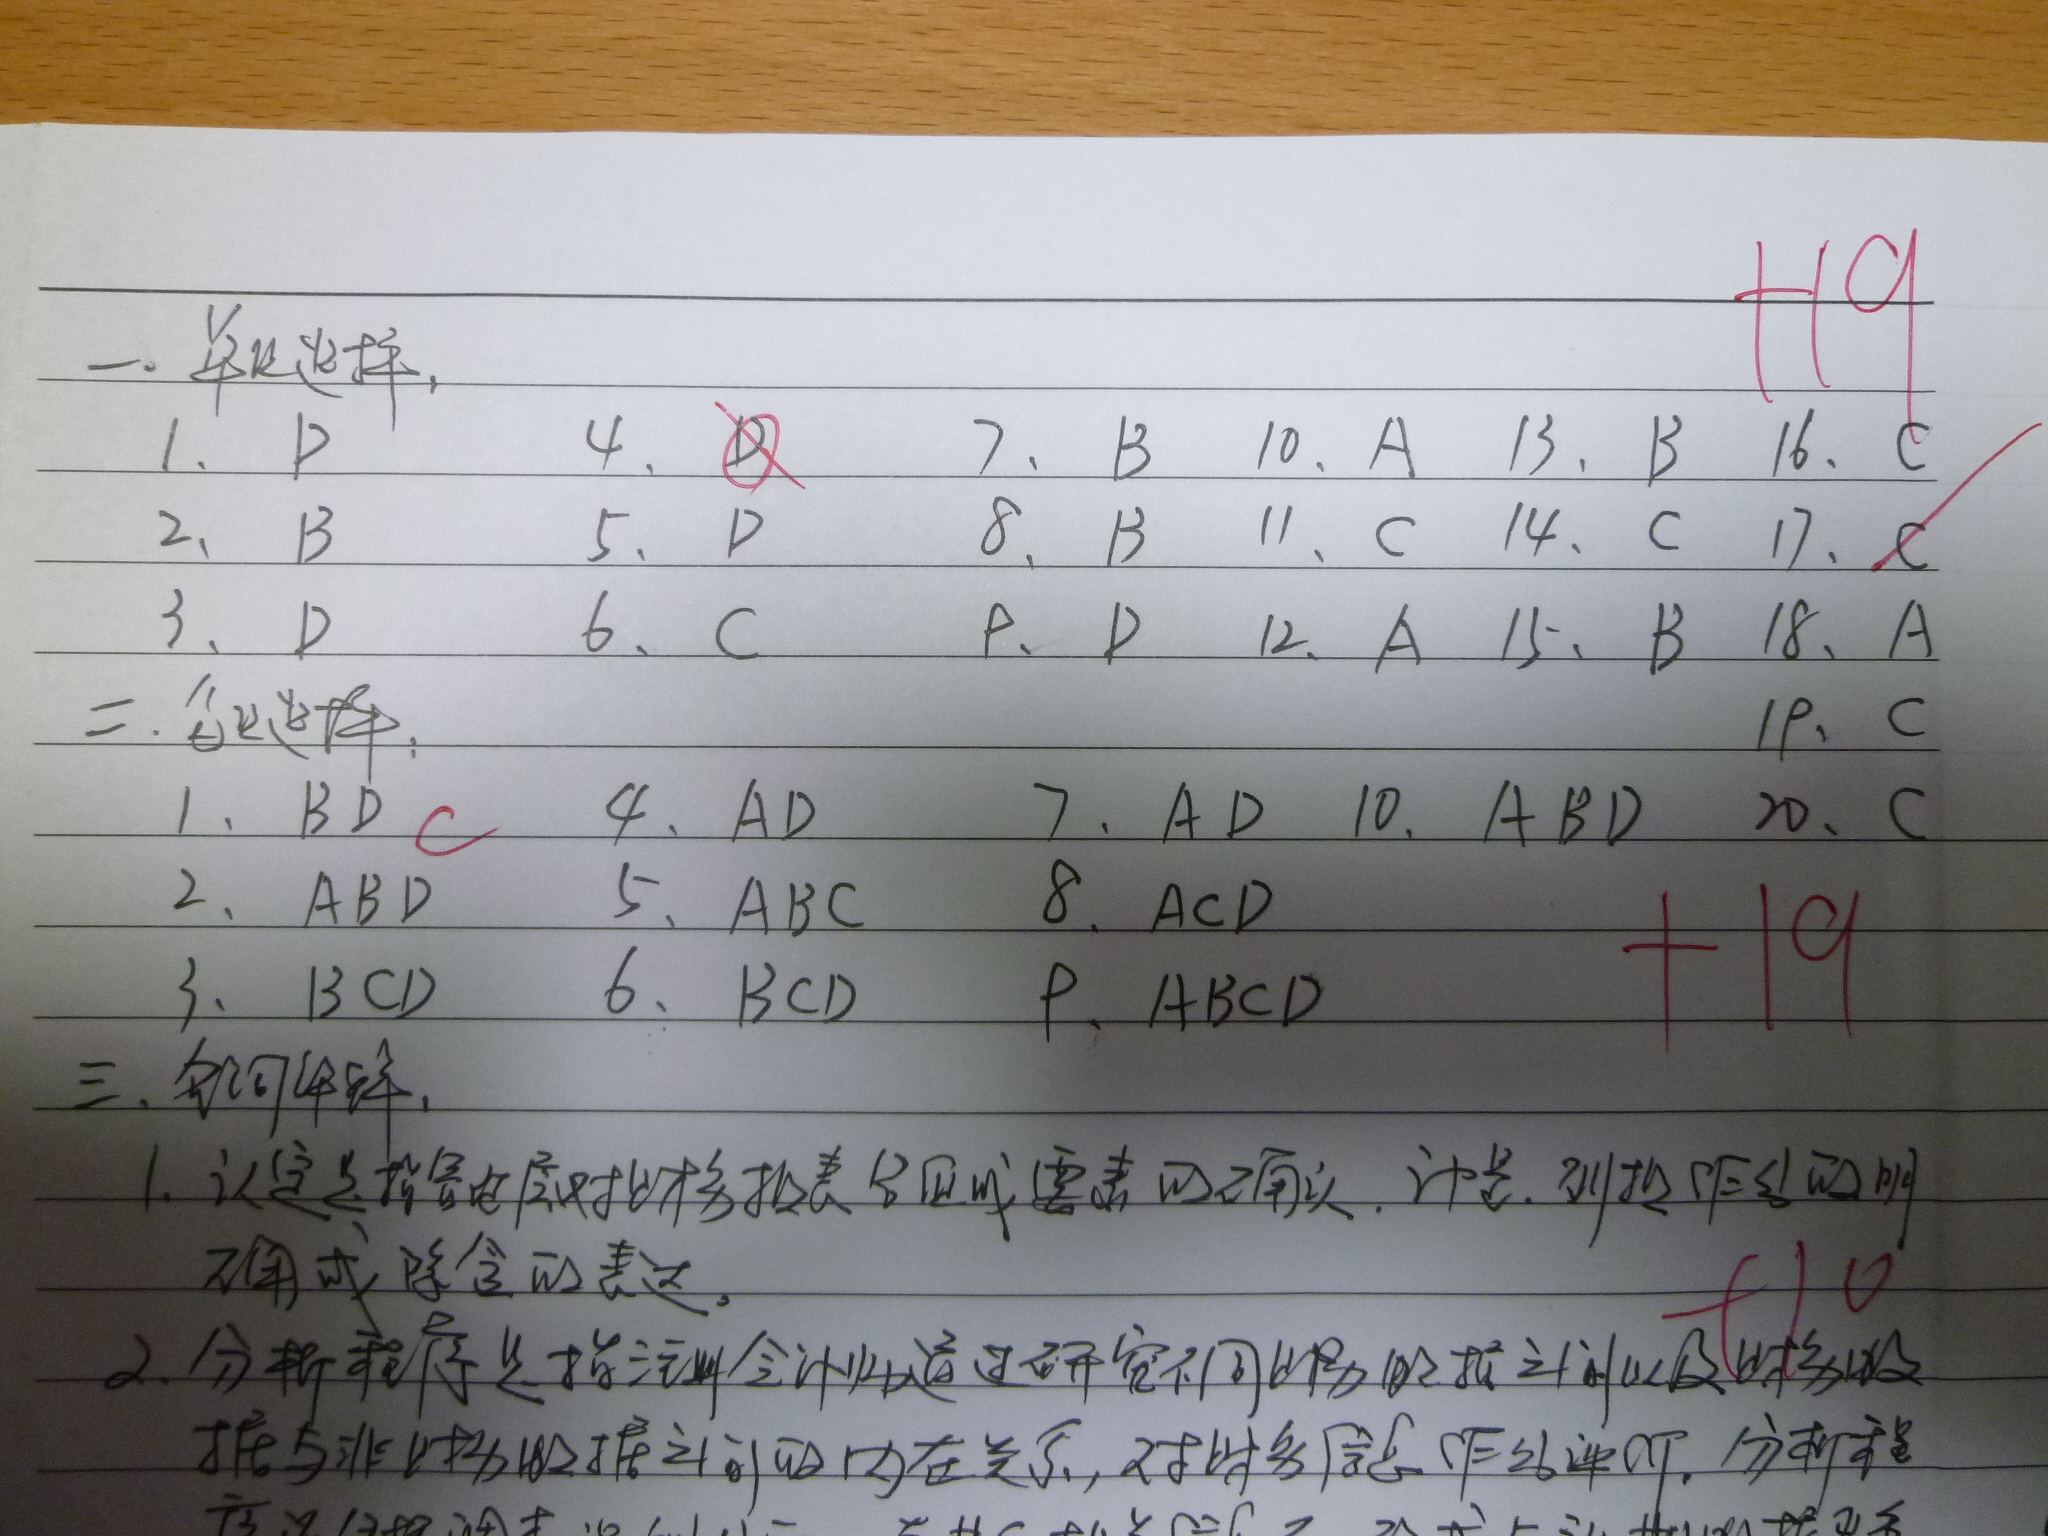 +19
一. 单项选择.
1. D 4. D 7. B 10. A 13. B 16. C
2. B 5. D 8. B 11. C 14. C 17. C
3. D 6. C 9. D 12. A 15. B 18. A
二. 多项选择. 19. C
1. BD C 4. AD 7. AD 10. ABD 20. C
2. ABD 5. ABC 8. ACD
+19
3. BCD 6. BCD 9. ABCD
三. 名词解释.
1. 认定是指管理层对财务报表各组成要素的确认. 计量. 列报作出的明
确或隐含的表达。
+10
2. 分析程序是指注册会计师通过研究不同财务数据之间以及财务数
据与非财务数据之间的内在关系, 对财务信息作出评价. 分析程